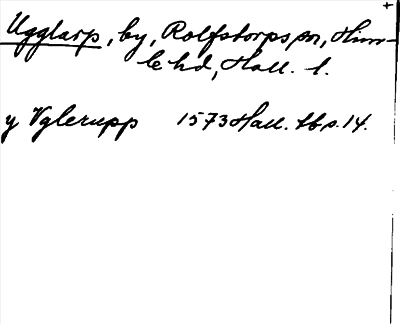 Ugglarp, by, Rolfstorps sn, Him-
le hd, Hall. l.
y Vglerupp 1573 Hall. tb s. 14.